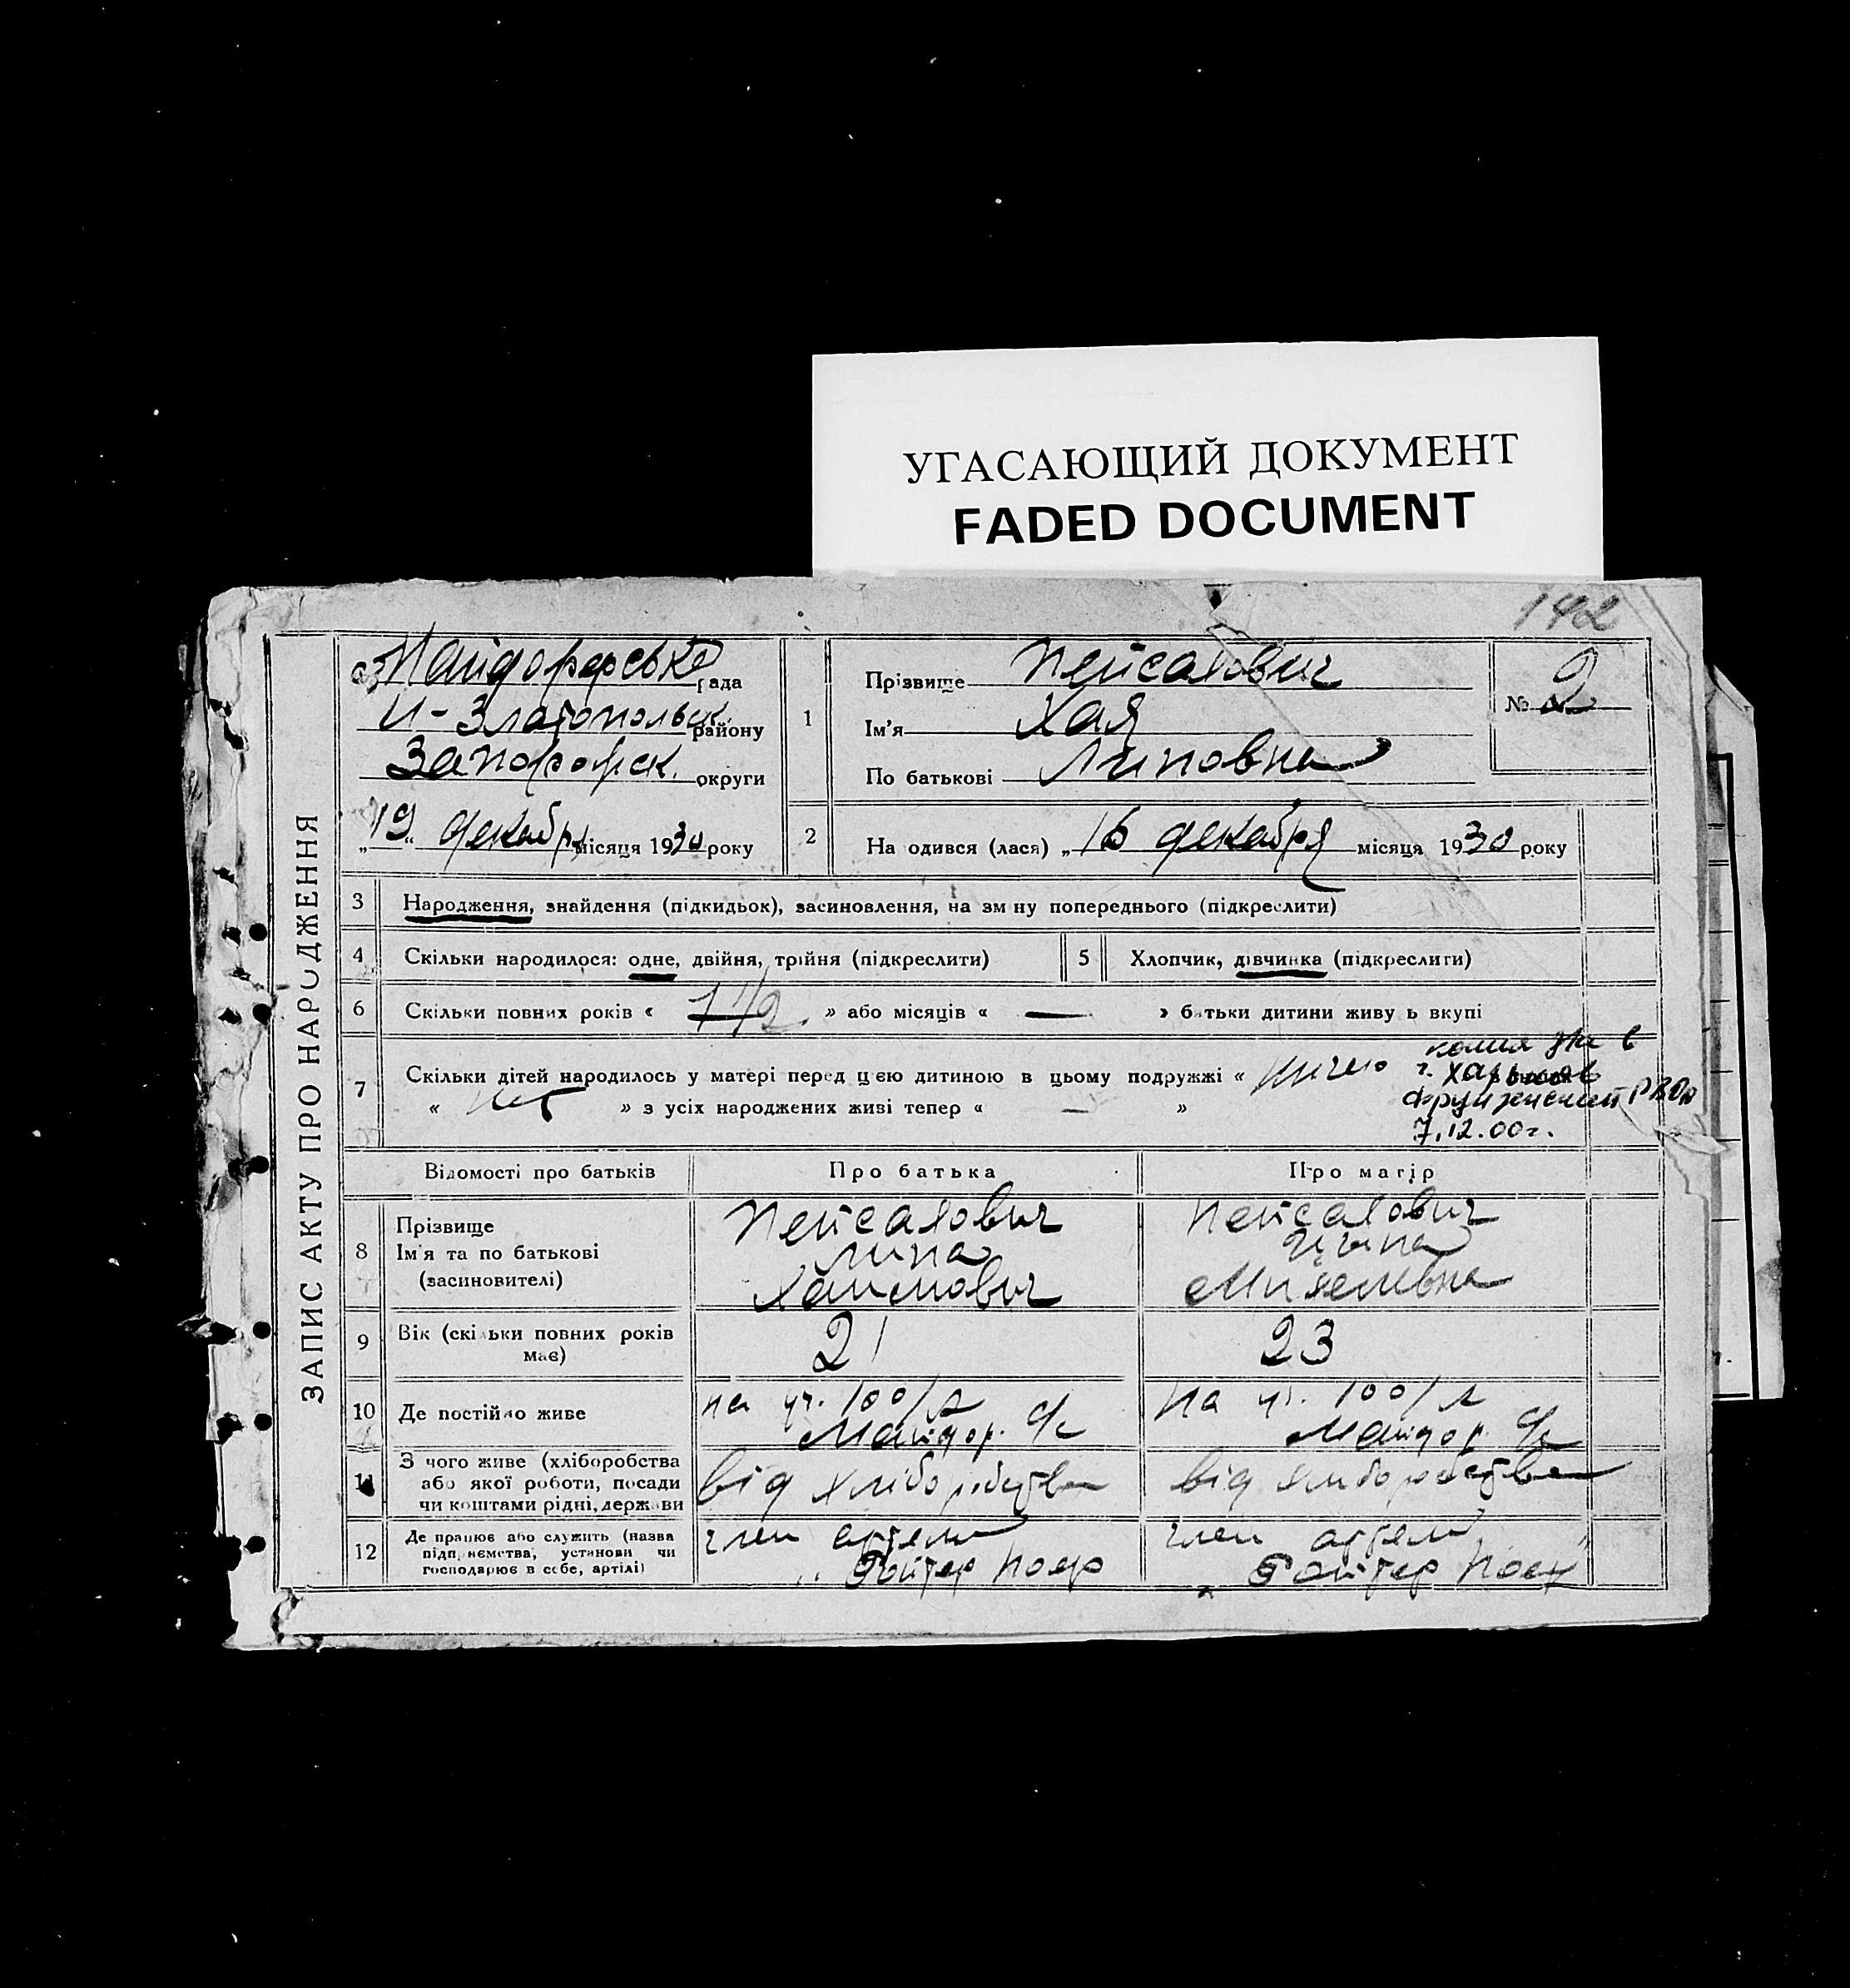 УГАСАЮЩИЙ ДОКУМЕНТ
FADED DOCUMENT
142
ЗАПИС АКТУ ПРО НАРОДЖЕННЯ
рада
Н-Златопольск. району
Запорожск. округи
„19“ декабря місяця 1930 року
1
Прізвище Пейсахович
Ім'я Хая
По батькові Липовна
№ 2
2 На одився (лася) „16 декабря місяця 1930 року
3 Народження, знайдення (підкидьок), засиновлення, на зм ну попереднього (підкреслити)
4 Скільки народилося: одне, двійня, трійня (підкреслити)
5 Хлопчик, дівчинка (підкреслити)
6 Скільки повних років « 1 1/2 » або місяців « — » батьки дитини живу ь вкупі
7 Скільки дітей народилось у матері перед цією дитиною в цьому подружжі «
« Нет » з усіх народжених живі тепер « — »
копия в
г. Харьков
Фрунзенский
7.12.00г.
Відомості про батьків
Про батька
Про матір
8 Прізвище
Ім'я та по батькові
(засиновителі)
Пейсахович
Липа
Хаимович
Пейсахович
9 Вік (скільки повних років має)
21
23
10 Де постійно живе
на уч. 100/
Майдор. с/с
на уч. 100/
Майдор. с/с
11 З чого живе (хліборобства
або якої роботи, посади
чи коштами рідні, держави
від хліборобства
від хліборобства
12 Де працює або служить (назва
підп, иємства, установи чи
господарює в себе, артілі)
член артели
член артели